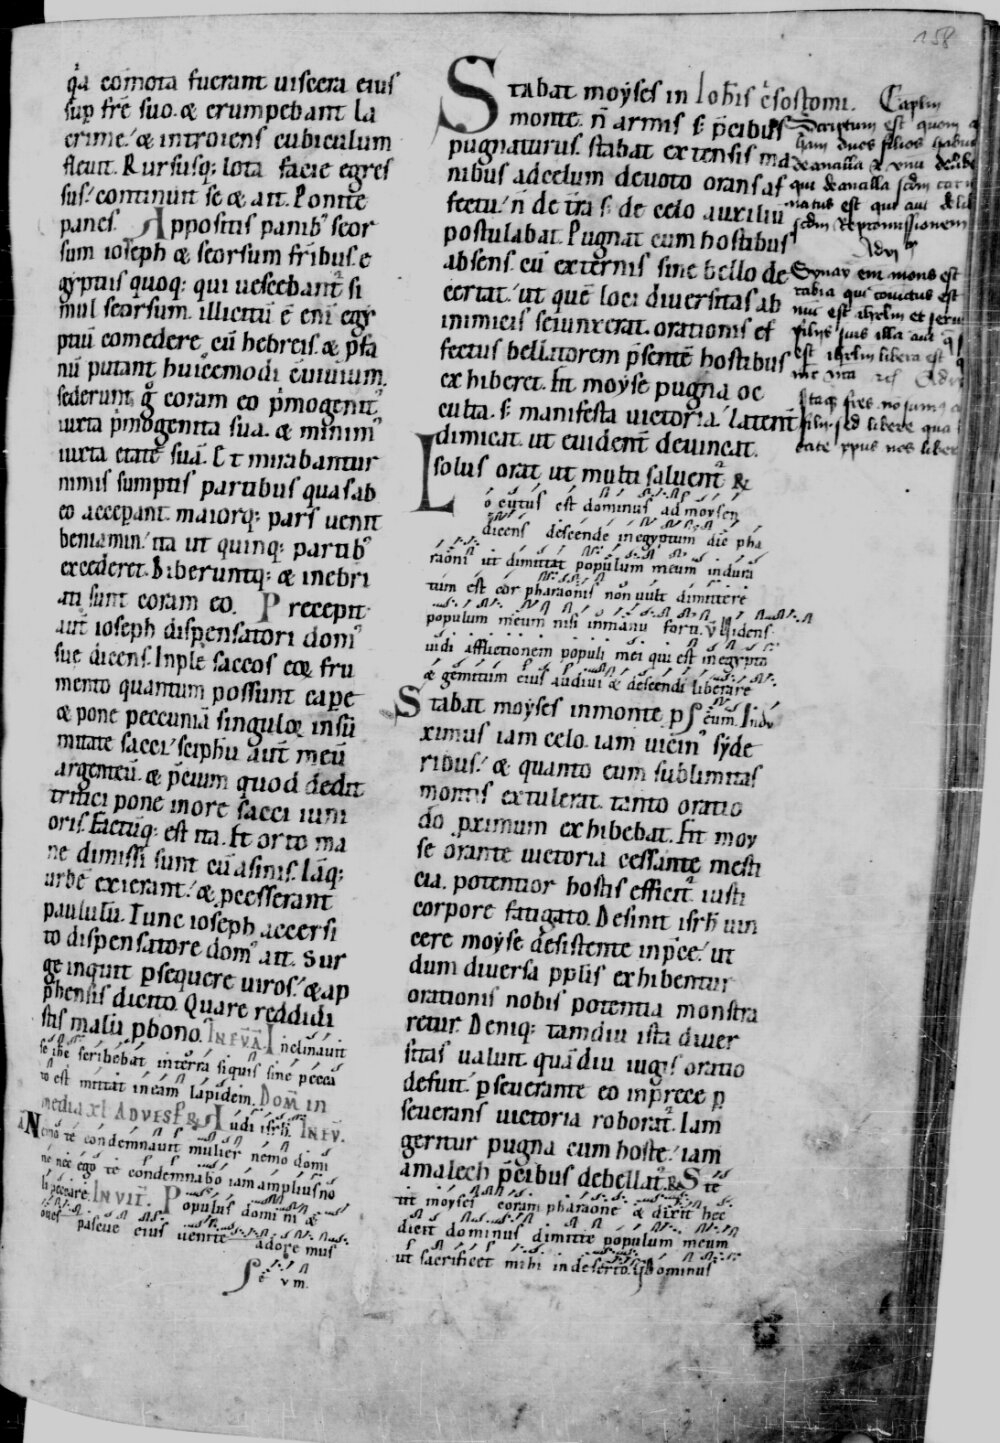 158
q̇a com̄ota fuerant uiscera eius
sup̱ fr̄e suo. & erumpebant la
crime. & introiens cubiculum
fleuit. Rursusq; lota facie egres
sus. continuit se & ait. Ponite
panes. Appositis panib; seor
sum ioseph & seorsum fr̄ibus. e
gyptiis quoq; qui uescebant̃ si
mul seorsum. illicitū ē eni egy
ptiū comedere cū hebreis. & p̱fa
nū putant huiccemodi c̄uiuium.
sederunt g̊ coram eo p̄mogenit᾽
iuxta p̄mogenita sua. & minim᾽
iuxta etatē suā. Et mirabantur
nimis sumptis partibus quas ab
eo acceperant. maiorq; pars uenit
beniamin. ita ut quinq; partib᾽
excederet. Biberuntq; & inebri
ati sunt coram eo. Precepit
aut̄ ioseph dispensatori dom᾽
sue dicens. Inple saccos eoꝝ fru
mento quantum possunt cape
& pone pecuniā singuloꝝ in sū
mitate sacci. sciphū aut̄ meū
argenteū. & p̄cium quod dedit
tritici pone in ore sacci iuni
oris. Factūq; est ita. Et orto ma
ne dimissi sunt cū asinis. Iāq;
urbē exierant. & p̱cesserant
paululū. Tunc ioseph accersi
to dispensatore dom᾽ ait. Sur
ge inquit p̱sequere uiros. & ap
p̱hensis dicito. Quare reddidi
stis malū p̱ bono. IN EVĀ Inclinauit
se ih̄c scribebat in terra siquis sine pecca
to est mittat in eam lapidem. DOM̄ IN
media xl AD VESP̄ R̄ Audi isrl̄. IN EV̄.
Nemo te condemnauit mulier nemo domi
ne nec ego te condemnabo iam amplius no
li peccare. INVIT̄. Populus domini &
oues pascue eius uenite adoremus
eū vm.
Stabat moyses in Ioh̄is c̄sostomi.
monte. n̄ armis s; p̄cibus
pugnaturus. stabat extensis ma
nibus ad celum deuoto orans af
fectu. n̄ de t̄ra s; de celo auxiliū
postulabat. Pugnat cum hostibus
absens. cū externis sine bello de
certat. ut quē loci diuersitas ab
inimicis seiunxerat. orationis ef
fectus bellatorem p̄sentē hostibus
exhiberet. Fit moyse pugna oc
culta. s; manifesta uictoria. latent̄
dimicat. ut euident̄ deuincat.
solus orat ut multi saluent᾽ R̄
Locutus est dominus ad moysen
dicens descende in egyptum dic pha
raoni ut dimittat populum meum indura
tum est cor pharaonis non uult dimittere
populum meum nisi in manu forti. V̄ Uidens
uidi afflictionem populi mei qui est in egypto
& gemitum eius audiui & descendi liberare
Stabat moyses in monte p̱ eum. In du
ximus iam celo. iam uicin᾽ syde
ribus. & quanto eum sublimitas
montis extulerat. tanto oratio
do p̱ximum exhibebat. Fit moy
se orante uictoria cessante mesti
cia. potentior hostis efficit᾽ iusti
corpore fatigato. Desinit isrl̄ uin
cere moyse desistente in p̄ce. ut
dum diuersa pp̄lis exhibentur
orationis nobis potentia monstra
retur. Deniq; tamdiu ista diuer
sitas ualuit. quādiu iugis oratio
defuit. p̱seuerante eo in prece p̱
seuerans uictoria roborat᾽. Iam
geritur pugna cum hoste. iam
amalech p̄cibus debellat᾽. R̄ Ste
tit moyses coram pharaone & dixit hec
dicit dominus dimitte populum meum
ut sacrificet mihi in deserto. V̄ Dominus
Caplm
Scriptum est quoniam a
ham duos filios habuit
de ancilla & vnū de libe
qui de ancilla scdm carn
natus est qui aut de lib
scdm repromissionem
Ad vj
Synay eni mons est
rabia qui coniunctus est
nūc est ihrlm et serui
filijs suis illa aut q̄ s
est ihrlm libera est q
Itaq̄ fr̄es nō sumus a
filij sed libere qua l
tate xp̄us nos liber